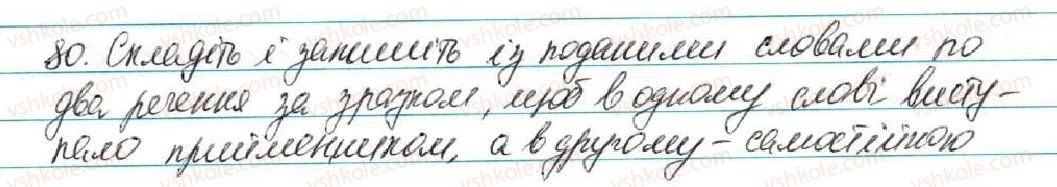 80. Складіть і запишіть із поданими словами по
два речення за зразком, щоб в одному слові висту-
пало прийменником, а в другому – самостійною